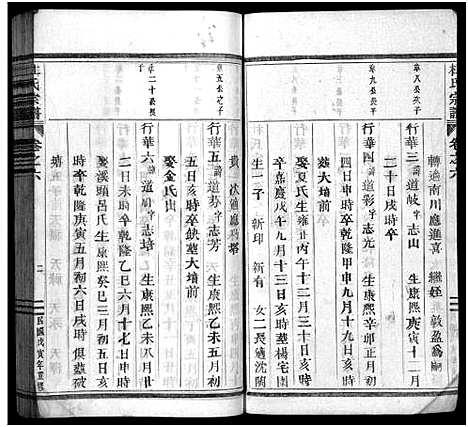 杜氏宗譜
卷之六
轉適南川應進喜 繼姪 敦盈為嗣
卓八公次子
行華三 諱道岐字志山 生康熙庚寅十一月
二十日戌時卒
卓九公長子
行華四 諱道彰字志光 生康熙
日申時卒乾隆甲申九月十九日亥時
葬大墳前
娶夏氏生 丑年十二月十三日亥時
卒嘉慶戊午九月十三日亥時葬楊宅園
生一子 新印 新有 女二長適沈蘭
貴 次適應門塔
卓五公之子
行華五 諱道芬字志芳 生康熙乙未五月初
五日亥時卒缺葬大墳前
娶金氏
卓二十公長子
行華六 諱道 字志培 生康熙乙未八月初
二日未時卒乾隆乙巳六月十七日卯時
娶溪頭呂氏生康熙癸巳三月初五日亥
時卒乾隆庚寅五月初六日戌時俱葬破
塘
杜氏宗譜
卷之六
二
民國戊寅年重修